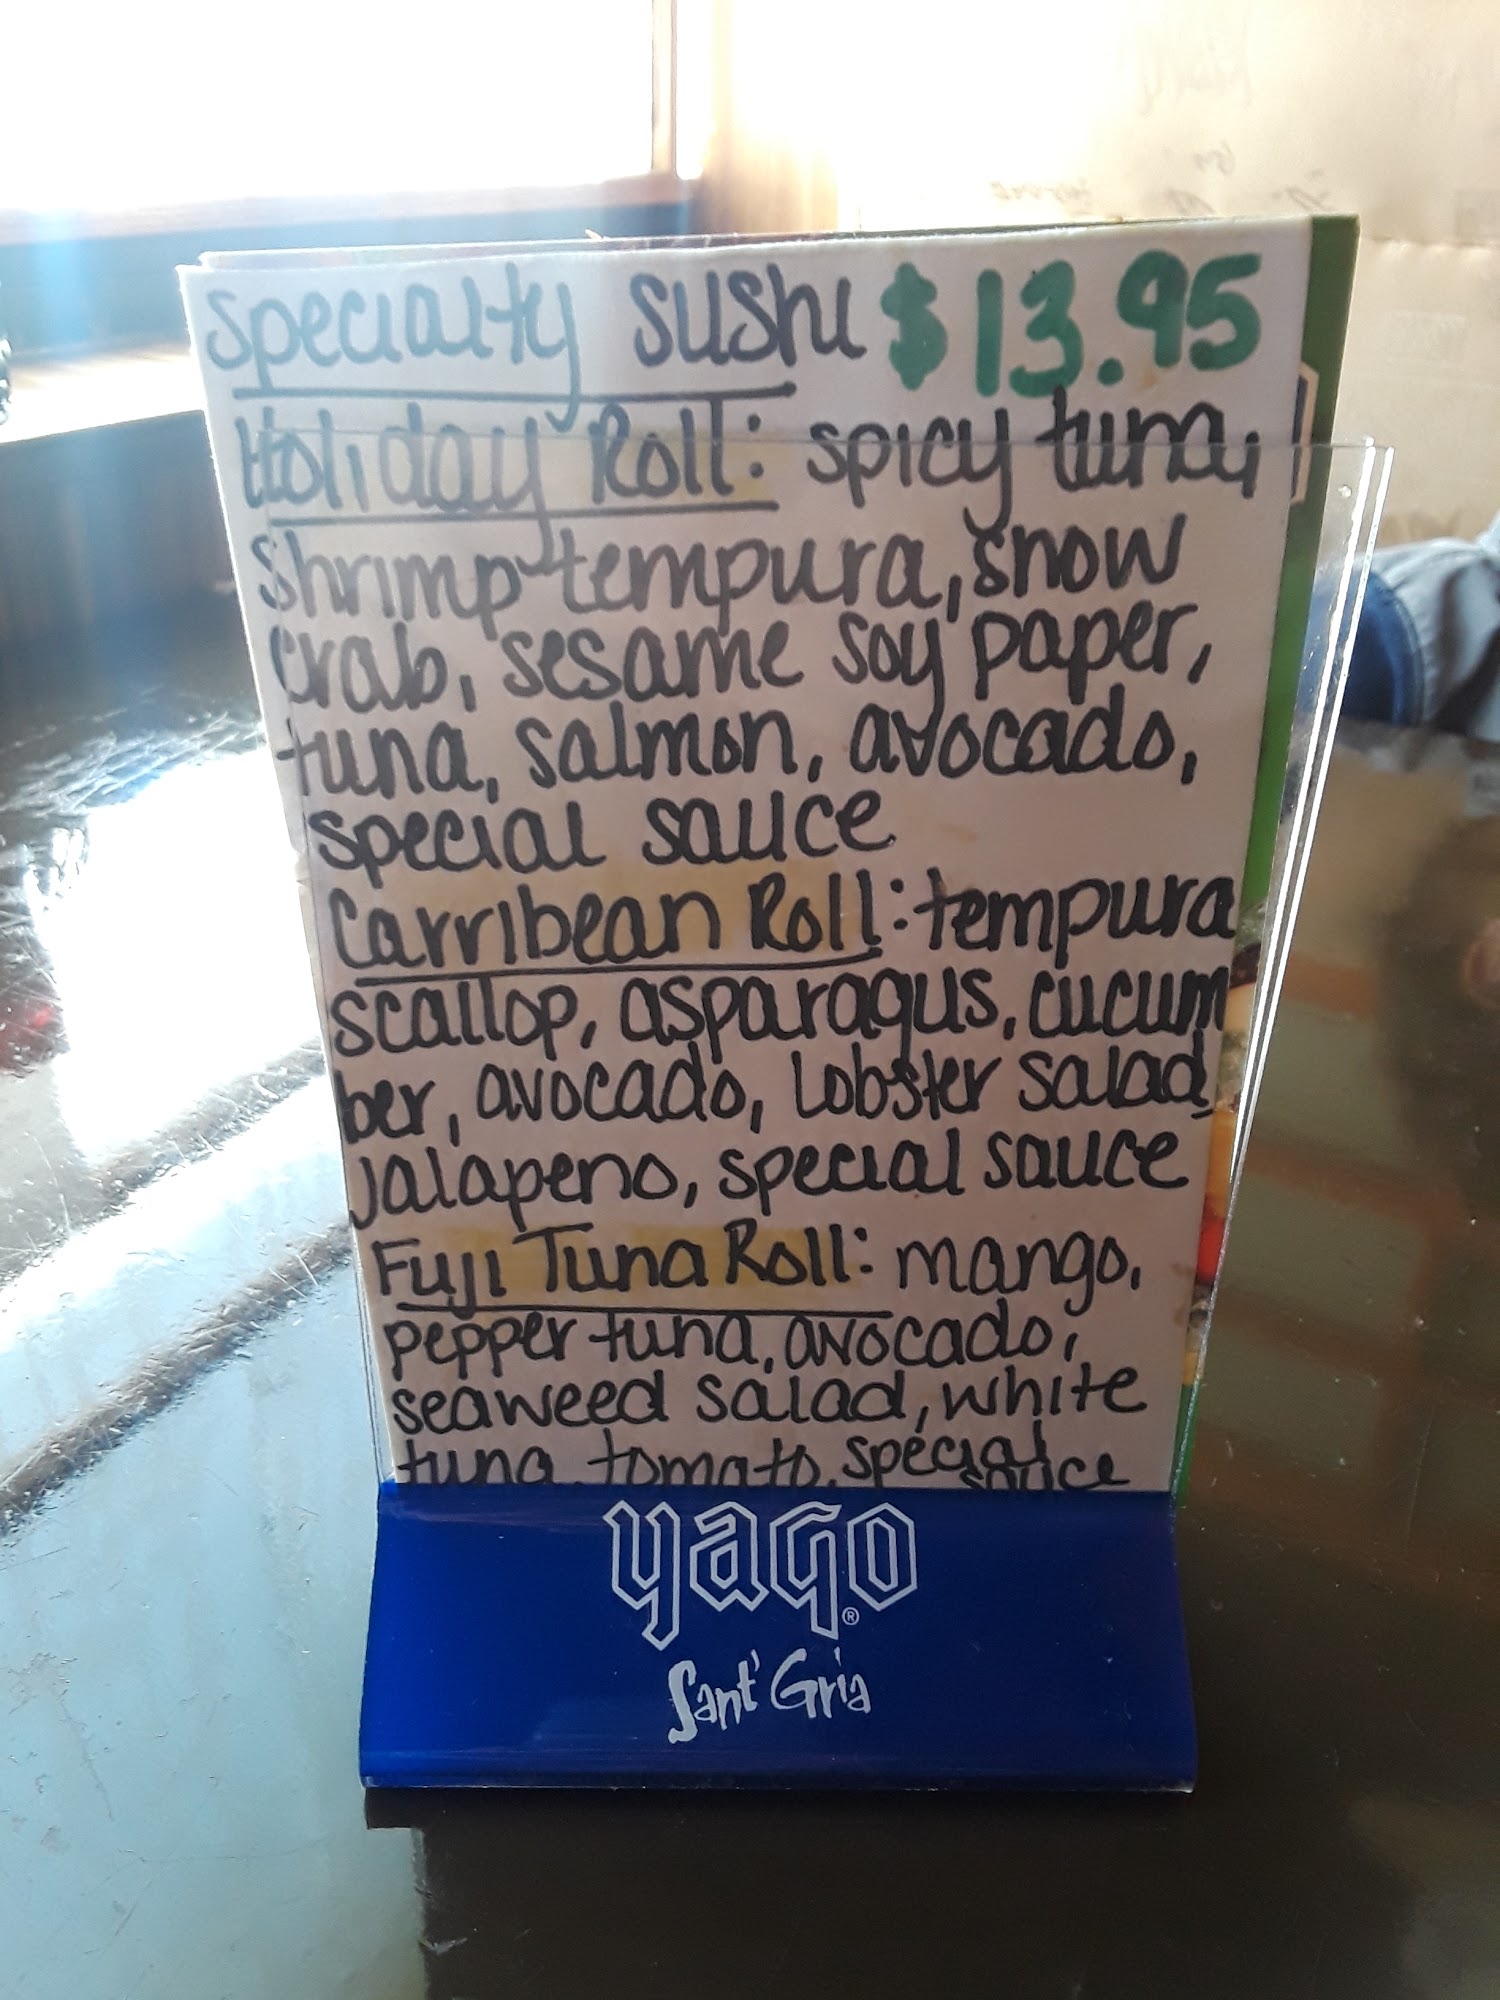 Specialty Sushi $13.95
Holiday Roll: spicy tuna,
Shrimp tempura, snow
crab, sesame soy paper,
tuna, salmon, avocado,
special sauce
Carribean Roll: tempura
scallop, asparagus, cucum
ber, avocado, Lobster Salad,
Jalapeno, special sauce
Fuji Tuna Roll: mango,
pepper tuna, avocado,
seaweed salad, white
tuna, tomato, special
sauce
yago®
Sant'Gria